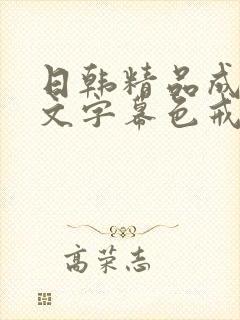 日韩精品成
文字幕色戒
高荣志